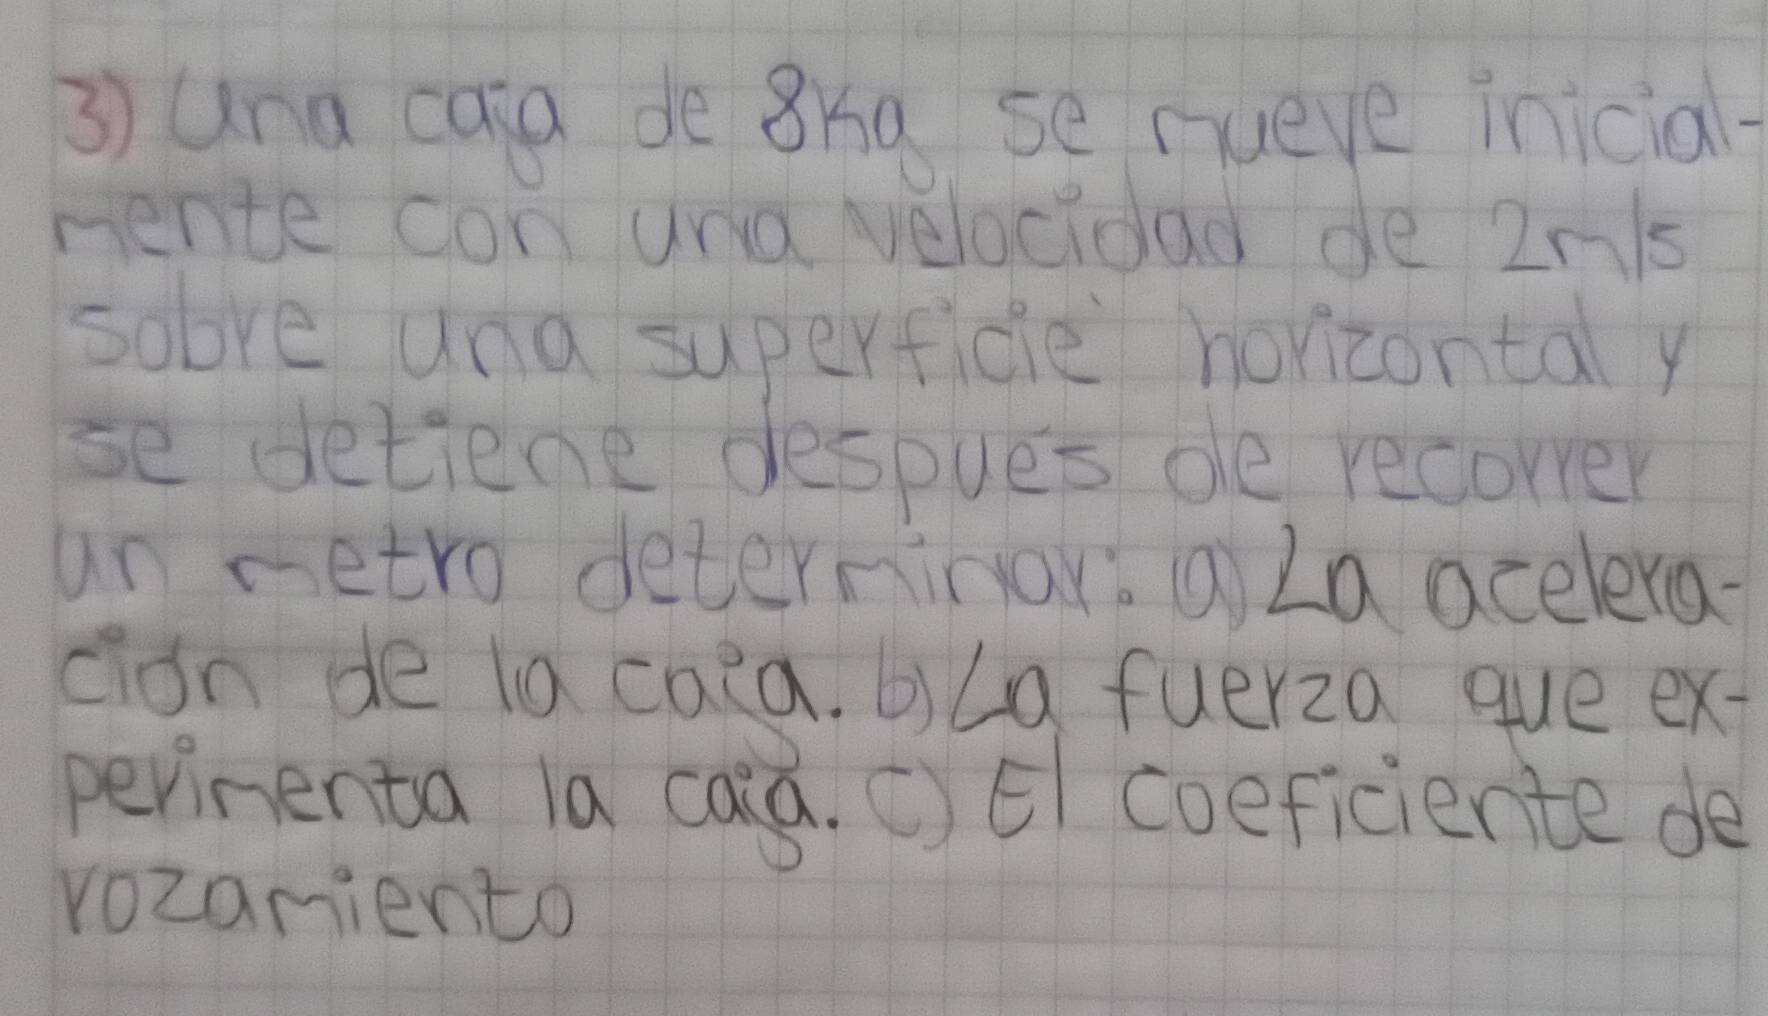 3) Una caja de 8Kg se mueve inicial-
mente con una velocidad de 2m/s
sobre una superficie horizontal y
se detiene después de recorrer
un metro determinar: a) La acelera-
ción de la caja. b) La fuerza que ex-
perimenta la caja. c) El coeficiente de
rozamiento